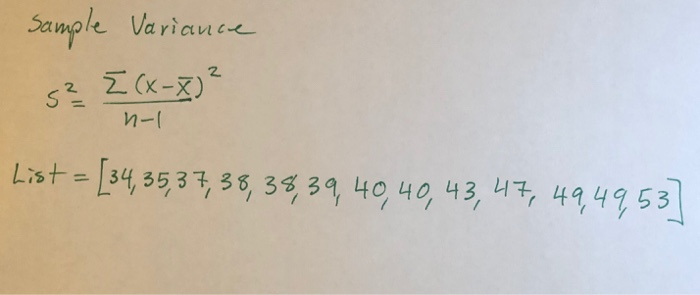 Sample Variance
s² = Σ(x-x̄)²
n-1
List = [34, 35, 37, 38, 38, 39, 40, 40, 43, 47, 49, 49, 53]